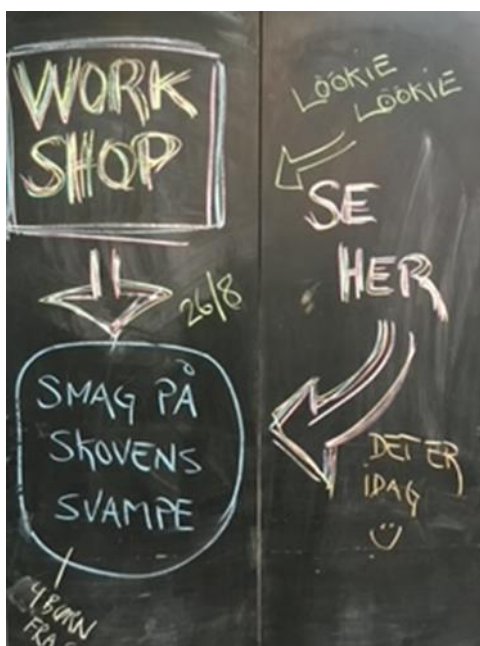 WORK
SHOP
26/8
SMAG PÅ
SKOVENS
SVAMPE
4 BØRN
FRA
LÖÖKIE
LÖÖKIE
SE
HER
DET ER
IDAG